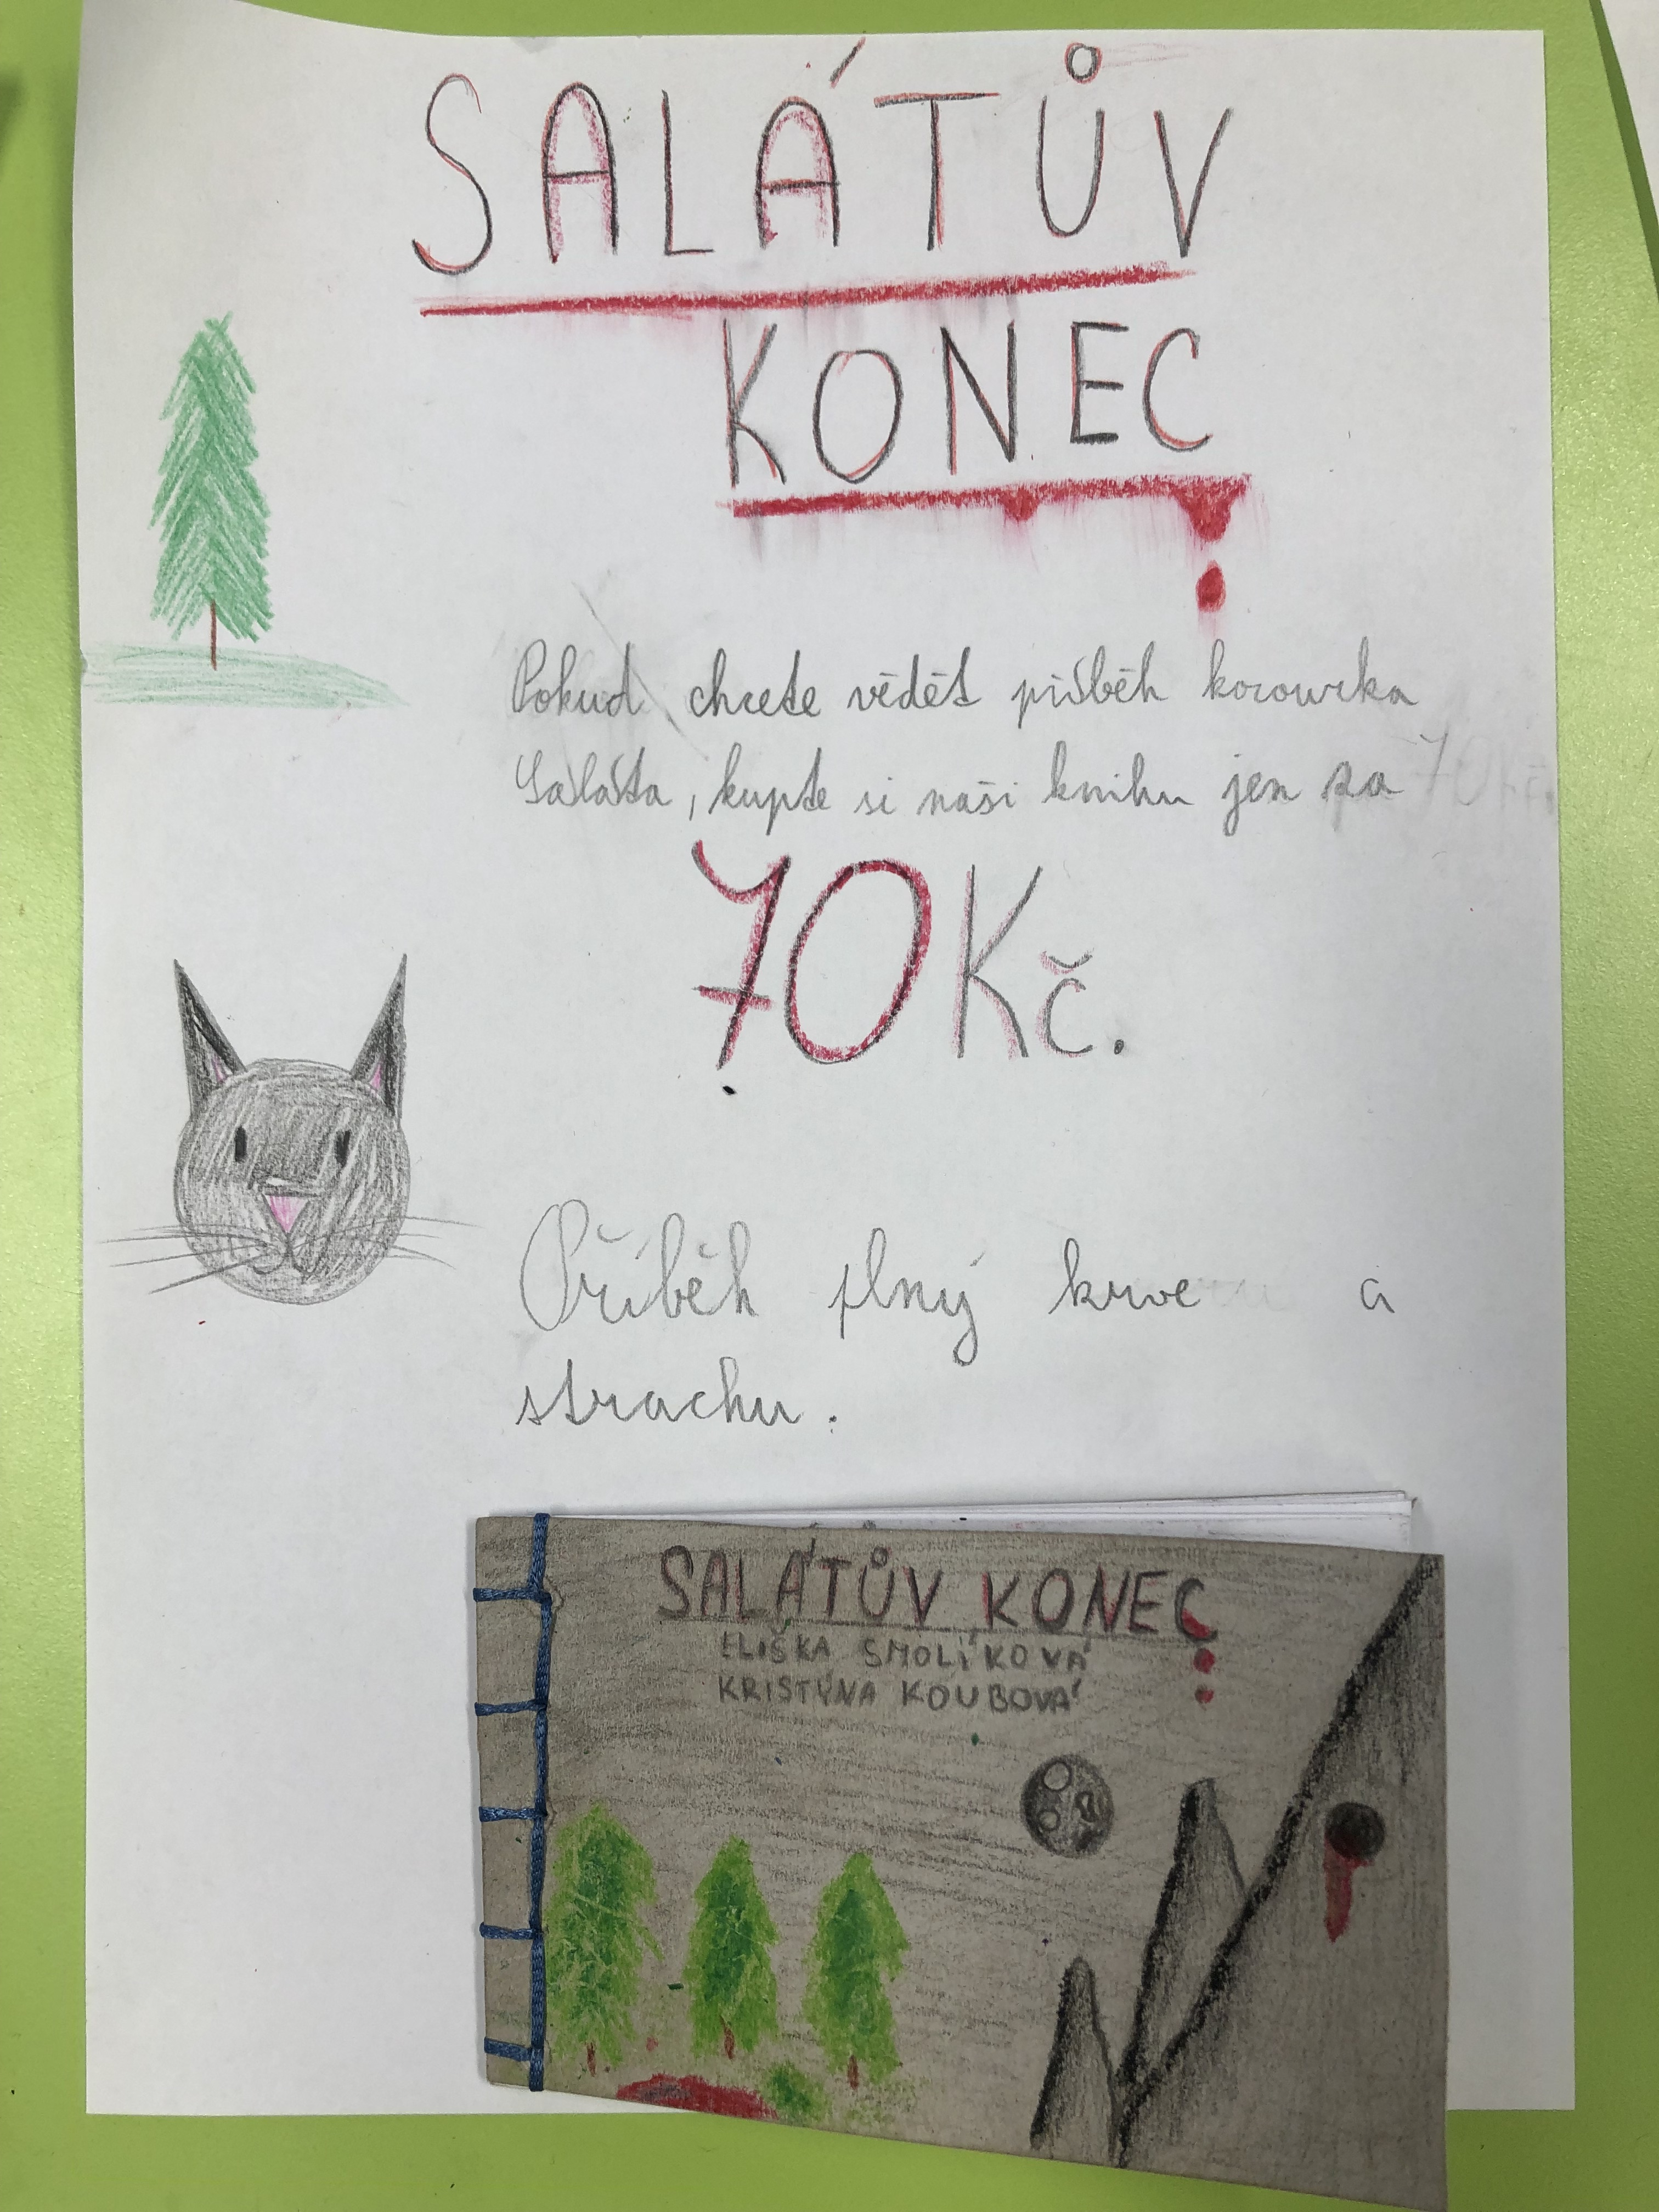 SALÁTŮV
KONEC
Pokud chcete vědět příběh kocourka
Saláta, kupte si naši knihu jen za
70 Kč.
Příběh plný krve a
strachu.
SALÁTŮV KONEC
ELIŠKA SMOLÍKOVÁ
KRISTÝNA KOUBOVÁ